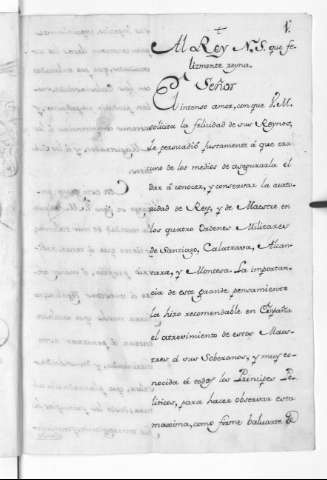 1.
Al Rey N. S. que fe-
lizmente reyna.
Señor
El intenso amor, con que V. M.
solicita la felicidad de sus Reynos,
le persuadió justamente á que era
uno de los medios de asegurarla el
dar á conocer, y conservar la auto-
ridad de Rey, y de Maestre en
las quatro Ordenes Militares
de Santiago, Calatrava, Alcan-
tara, y Montesa. La importan-
cia de este grande pensamiento
la hizo recomendable en España
el atrevimiento de estos Maes-
tres á sus Soberanos, y muy co-
nocida á todos los Principes Po-
liticos, para hacer observar esta
maxima, como firme baluarte